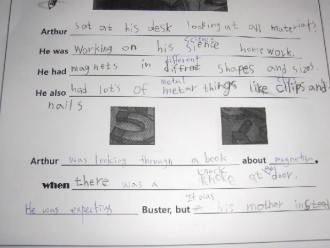 Arthur sat at his desk looking at all materials.
science
He was Working on his sience home work.
different
He had magnets in diffrent shapes and sizes
metal
He also had lots of metar things like clips and
nails
Arthur was looking through a book about magnetism.
knock
when there was a knocke at door.
It was
He was expecting Buster, but his mother instead